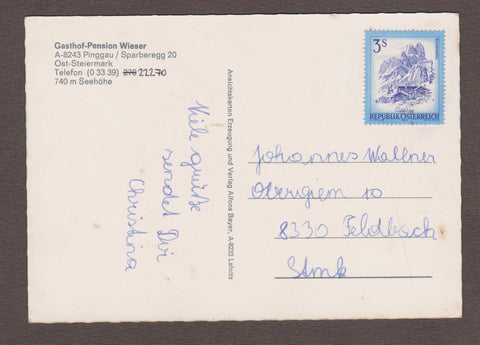 Gasthof-Pension Wieser
A-8243 Pinggau / Sparberegg 20
Ost-Steiermark
Telefon (0 33 39) 270 22270
740 m Seehöhe
Viele grüße
sendet Dir
Christina
Ansichtskarten Erzeugung und Verlag Alfons Bayer, A-8233 Lafnitz
3S
REPUBLIK ÖSTERREICH
Johannes Wallner
Obergiem 10
8330 Feldbach
Stmk